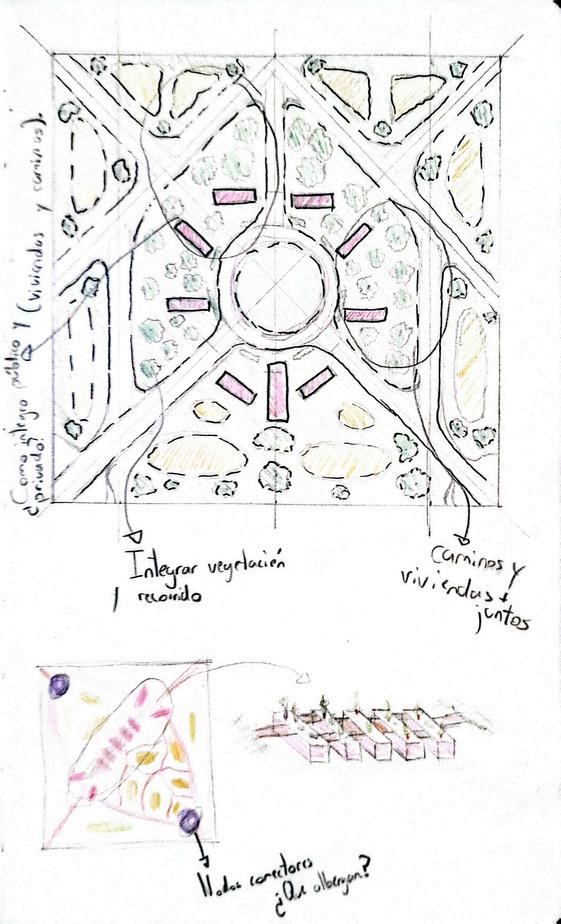 ¿Como integro público y (viviendas y caminos).
privado?
Integrar vegetación
y recorrido
Caminos y
viviendas +
juntos
Nodos conectores
¿Que albergan?